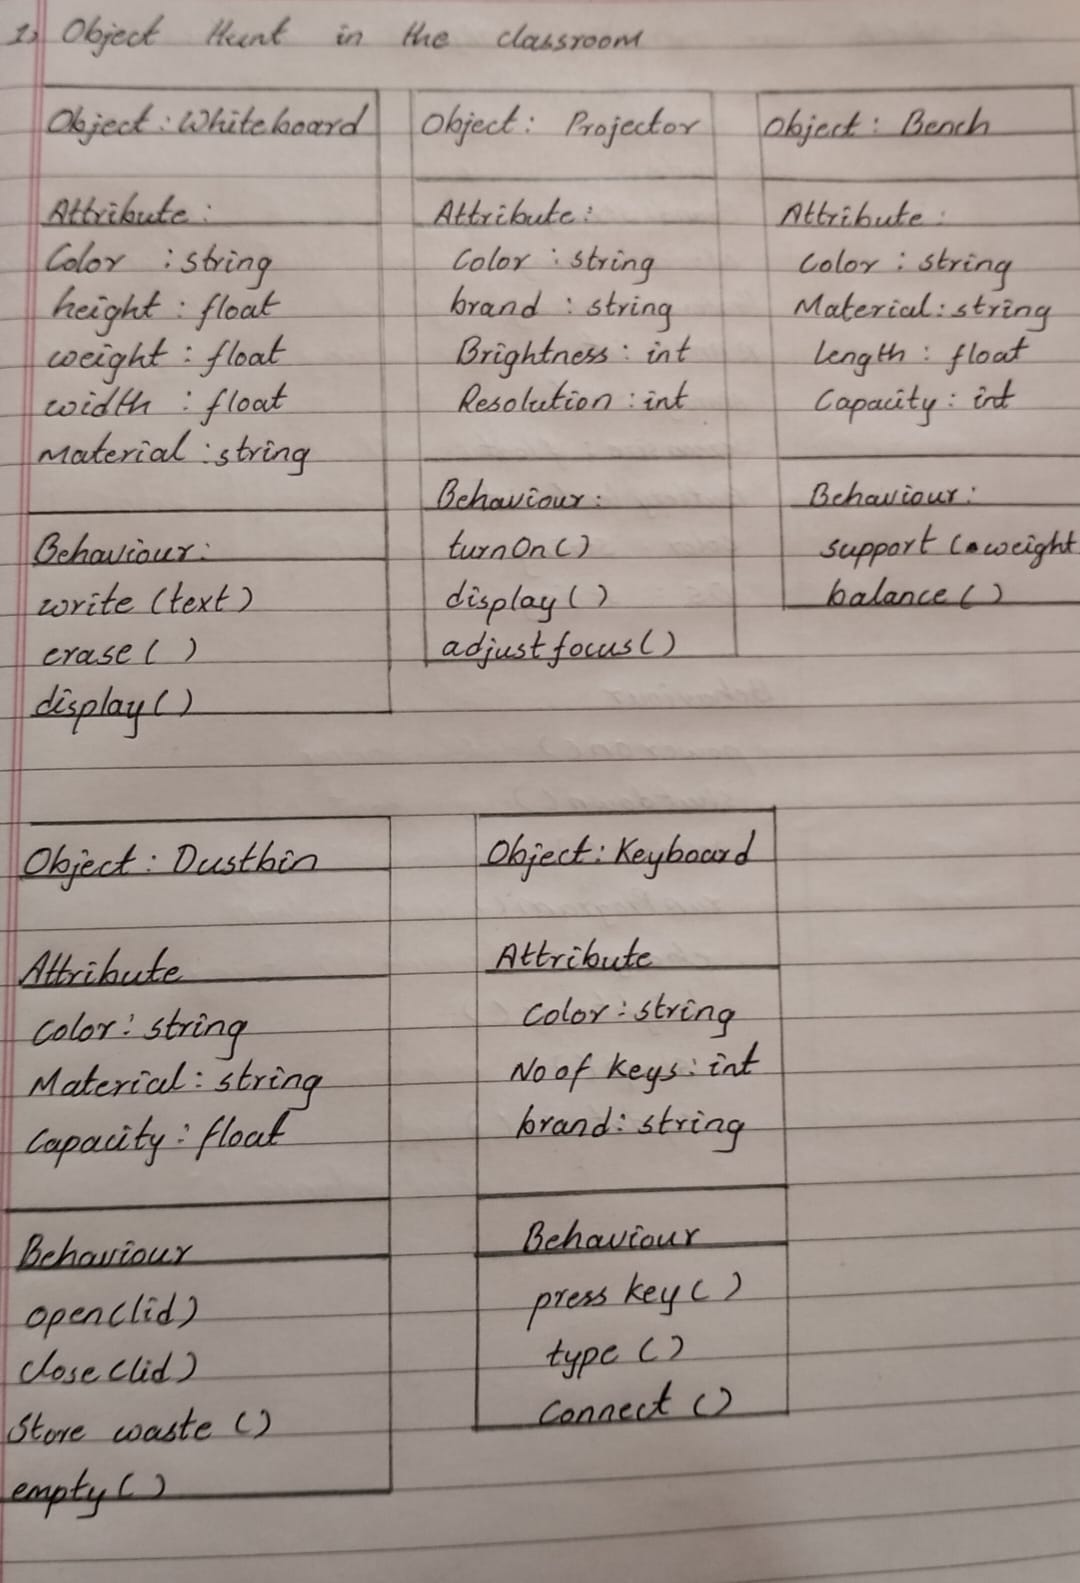 1) Object Hunt in the classroom
Object : Whiteboard
Attribute :
Color : string
height : float
weight : float
width : float
Material : string
Behaviour :
write (text)
erase ( )
display ( )
Object : Projector
Attribute :
Color : string
brand : string
Brightness : int
Resolution : int
Behaviour :
turnOn ( )
display ( )
adjust focus ( )
Object : Bench
Attribute :
Color : string
Material : string
length : float
Capacity : int
Behaviour :
support ( weight
balance ( )
Object : Dustbin
Attribute
Color : string
Material : string
Capacity : float
Behaviour
open(lid)
close(lid)
Store waste ( )
empty ( )
Object : Keyboard
Attribute
Color : string
No of keys : int
brand : string
Behaviour
press key ( )
type ( )
Connect ( )